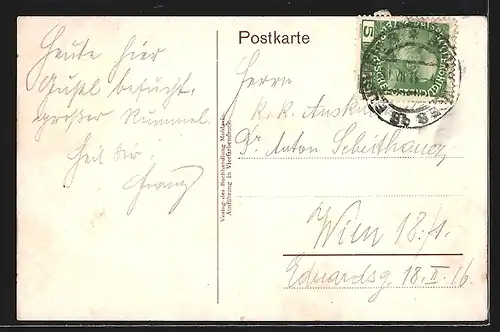 Postkarte
5
Heute hier
Gusel besucht,
großer Rummel.
Heil Dir!
Franz
Verlag der Buchhandlung
Ausführung in Vierfarbendruck.
Herrn
k. k. Ausku
Dr. Anton Scheithauer
Wien 18./1.
Eduardsg. 18. II. 16